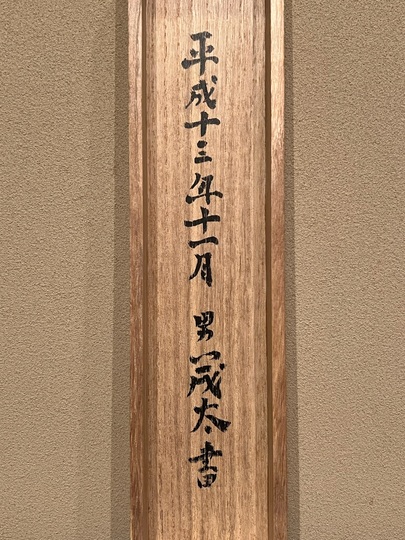 平成十三年十一月 男 茂太書